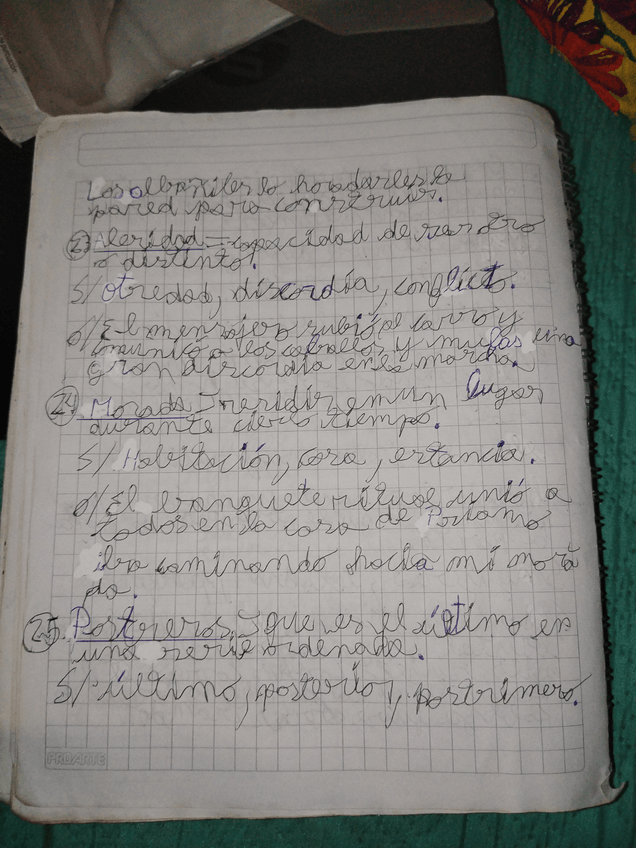 Los albañiles lo horadarles la
pared para construir.
23 Aleridad = capacidad de ser otro
o distinto.
S/ otredad, discordia, conflicto.
O/ El mensajero subió al carro y
comunicó a los caballos y mulas una
gran discordia en la marcha.
24 Morada → residir en un lugar
durante cierto tiempo.
S/ Habitación, casa, estancia.
O/ El banquete ritual unió a
todos en la casa de Príamo
iba caminando hacia mi mora
da.
25. Postreros → que es el último en
una serie ordenada.
S/ último, posterior, postrimero.
PRUARTE